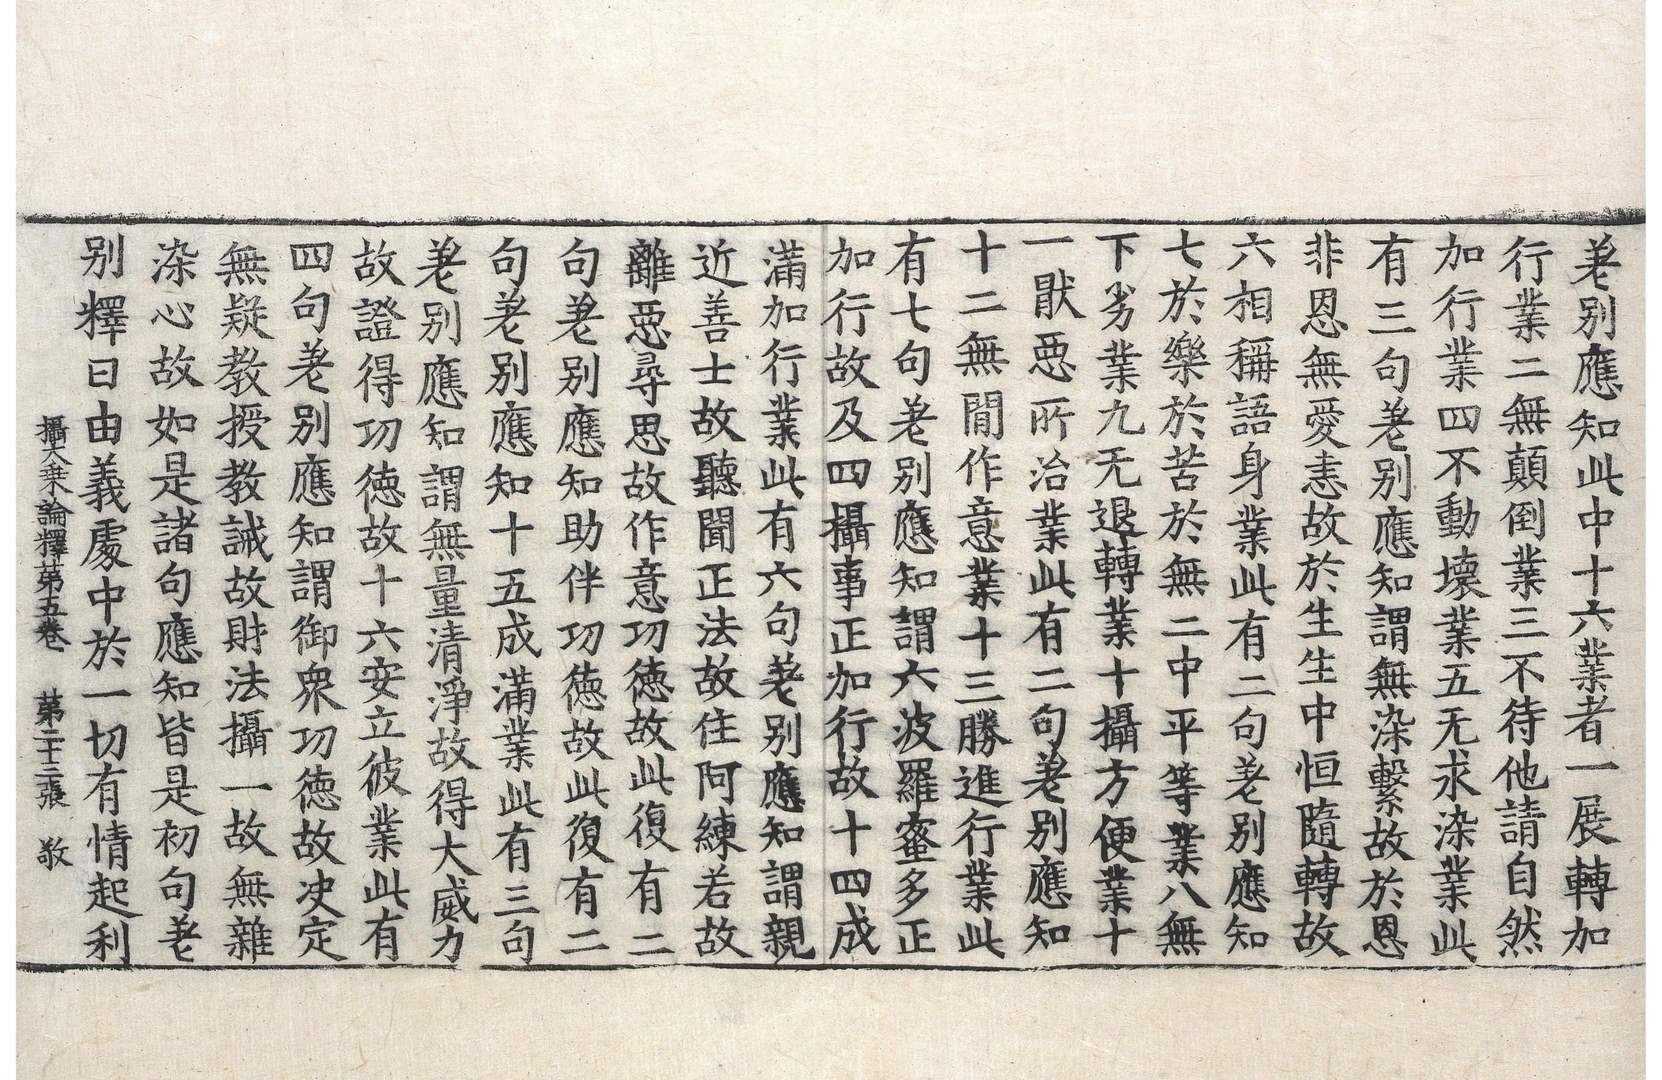 差别應知此中十六業者一展轉加
行業二無顛倒業三不待他請自然
加行業四不動壞業五无求染業此
有三句差别應知謂無染繫故於恩
非恩無愛恚故於生生中恒隨轉故
六相稱語身業此有二句差别應知
七於樂於苦於無二中平等業八無
下劣業九无退轉業十攝方便業十
一猒惡所治業此有二句差别應知
十二無閒作意業十三勝進行業此
有七句差别應知謂六波羅蜜多正
加行故及四攝事正加行故十四成
滿加行業此有六句差别應知謂親
近善士故聽聞正法故住阿練若故
離惡尋思故作意功徳故此復有二
句差别應知助伴功徳故此復有二
句差别應知十五成滿業此有三句
差别應知謂無量清淨故得大威力
故證得功徳故十六安立彼業此有
四句差别應知謂御衆功徳故决定
無疑教授教誡故財法攝一故無雜
染心故如是諸句應知皆是初句差
别釋曰由義處中於一切有情起利
攝大乗論釋苐五卷　苐二十三張　敬